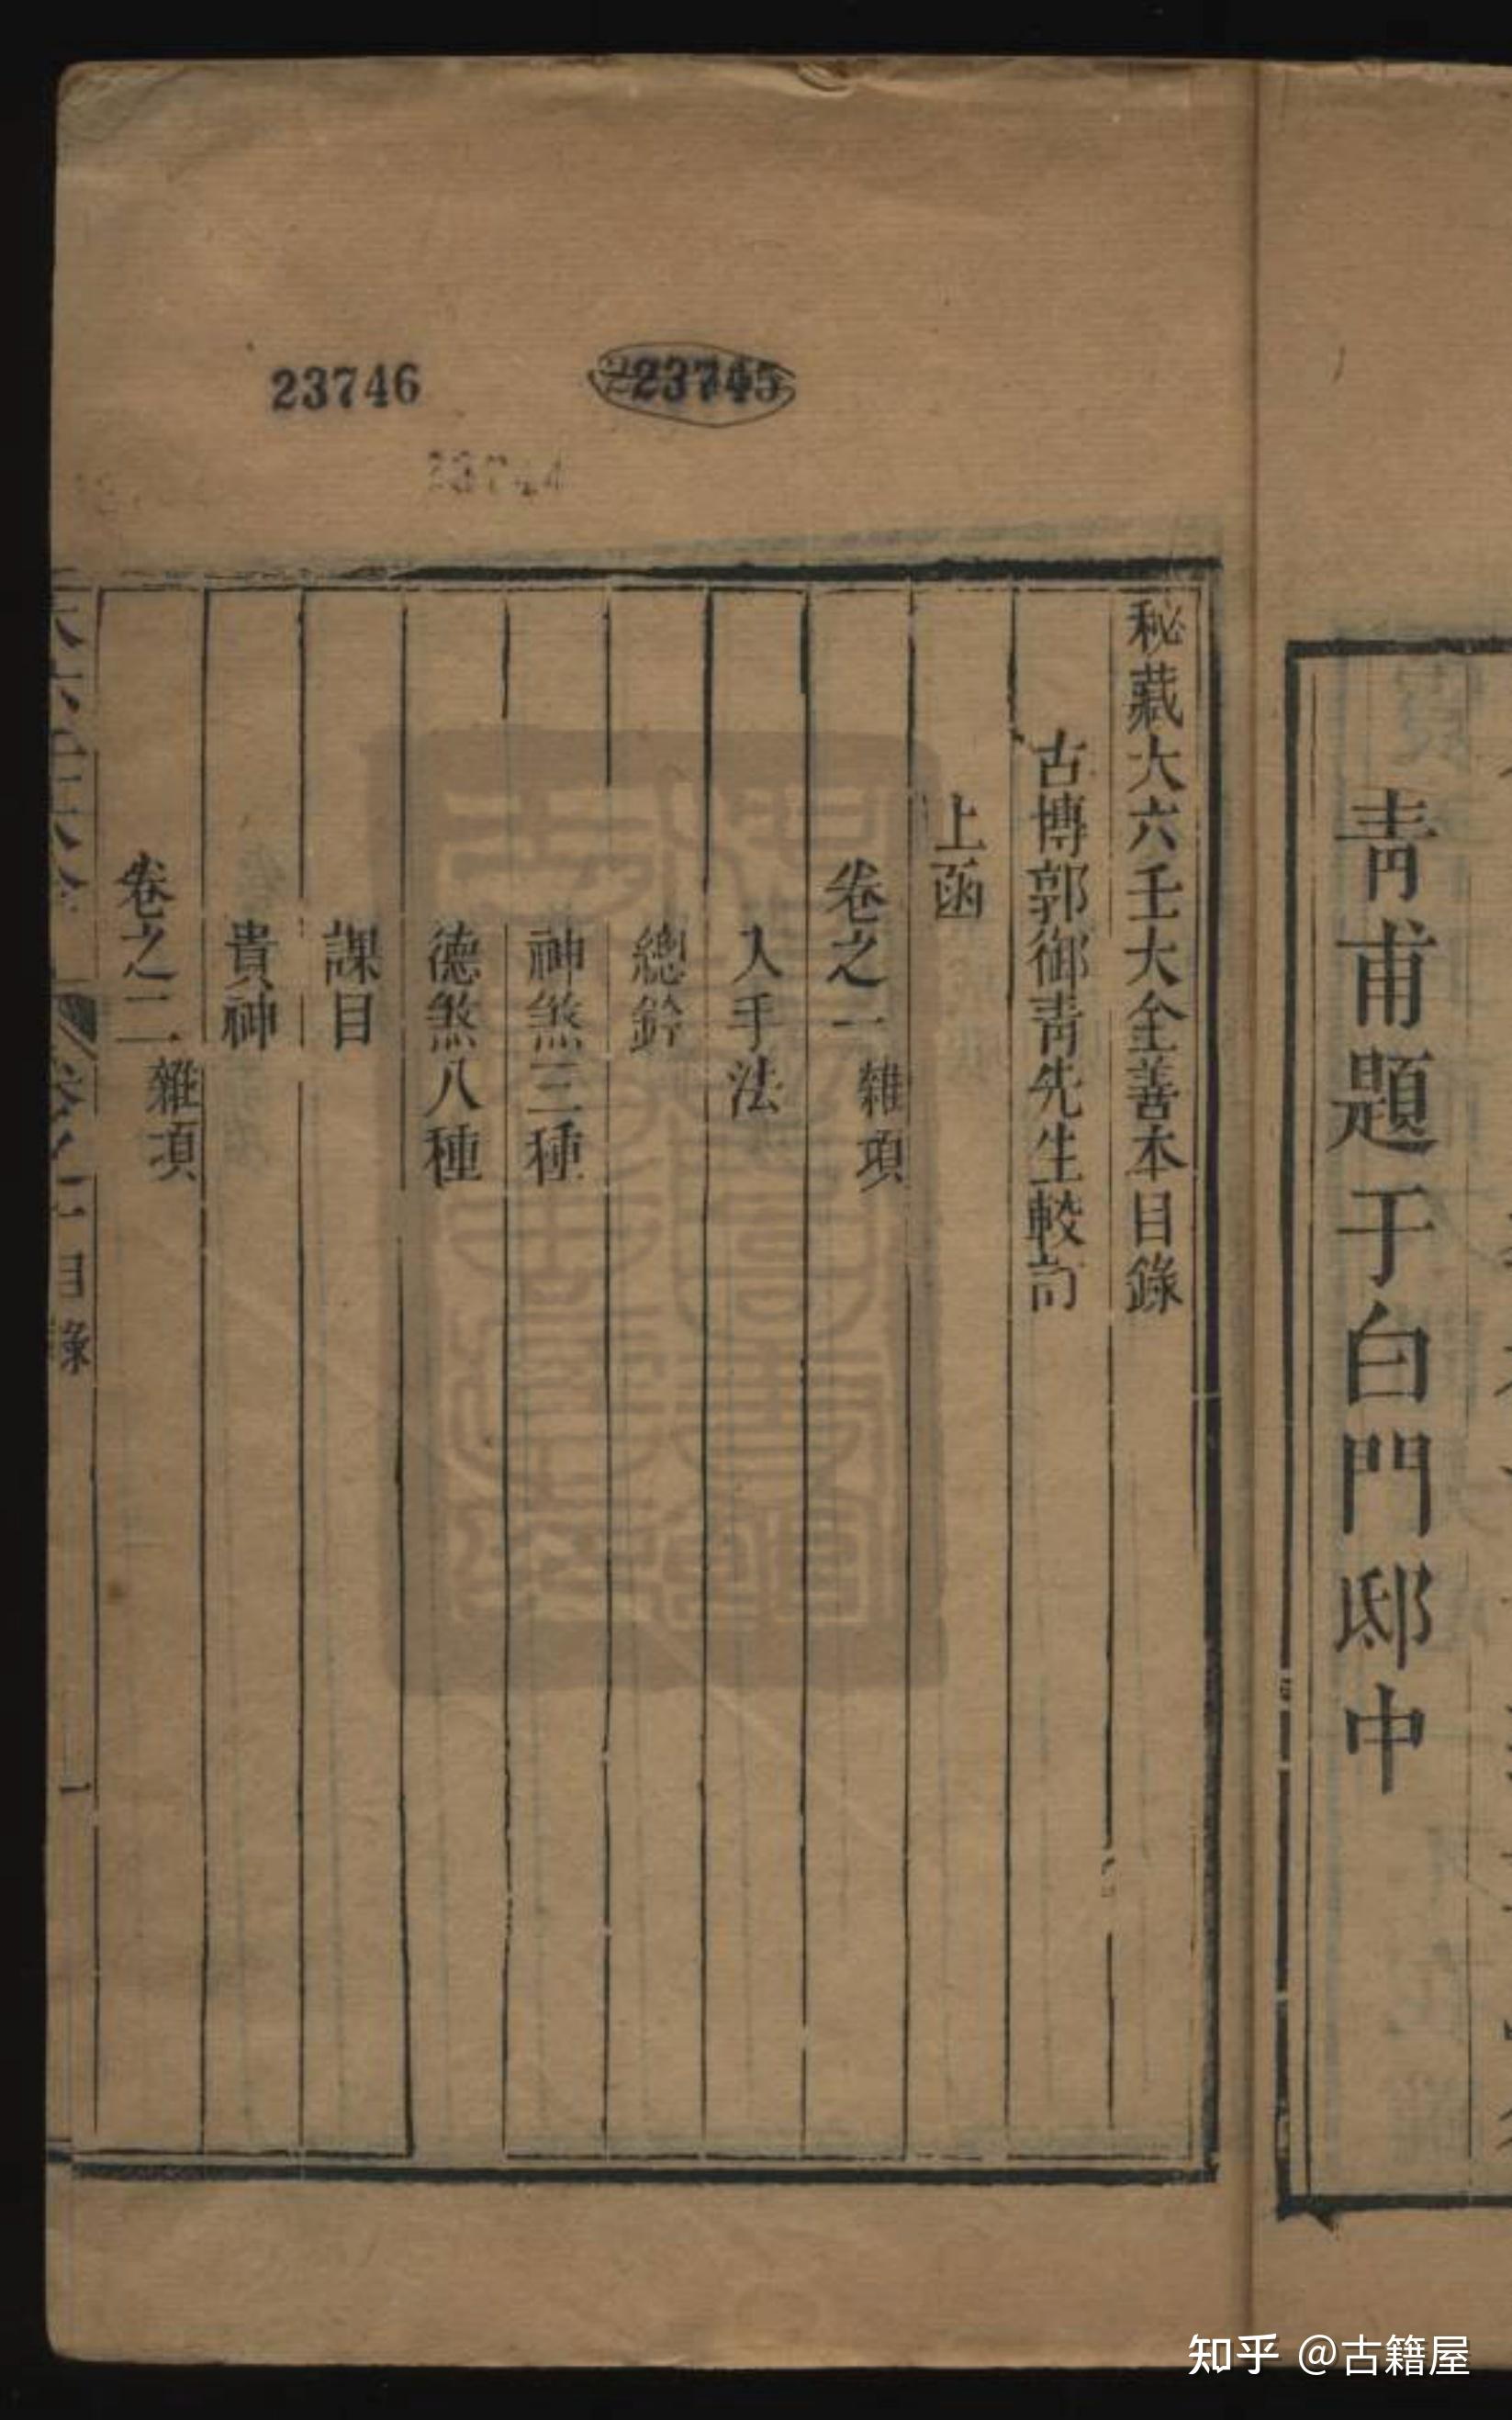 23746
23745
青甫題于白門邸中
秘藏大六壬大全善本目錄
古博郭御青先生較訂
上函
卷之一 雜項
入手法
總鈐
神煞三種
德煞八種
課目
貴神
卷之二 雜項
目錄
一
知乎 @古籍屋